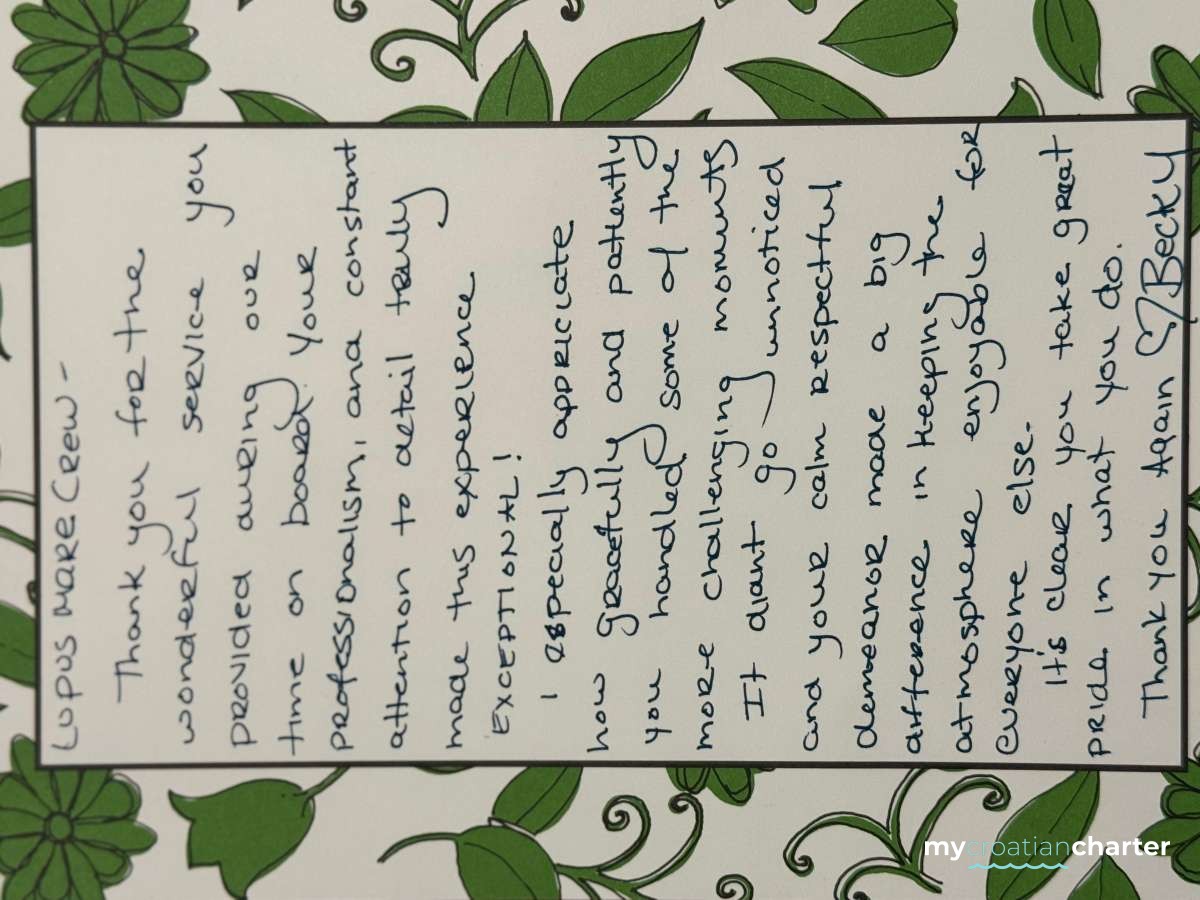 Lupus Mare Crew -
Thank you for the
wonderful service you
provided during our
time on board. Your
professionalism, and constant
attention to detail truly
made this experience
EXCEPTIONAL!
I especially appriciate
how gracefully and patiently
you handled some of the
more challenging moments
It didnt go unnoticed
and your calm respectful
demeanor made a big
difference in keeping the
atmosphere enjoyable for
everyone else.
It's clear you take great
pride in what you do.
Thank you Again ♡Becky
mycroatiancharter